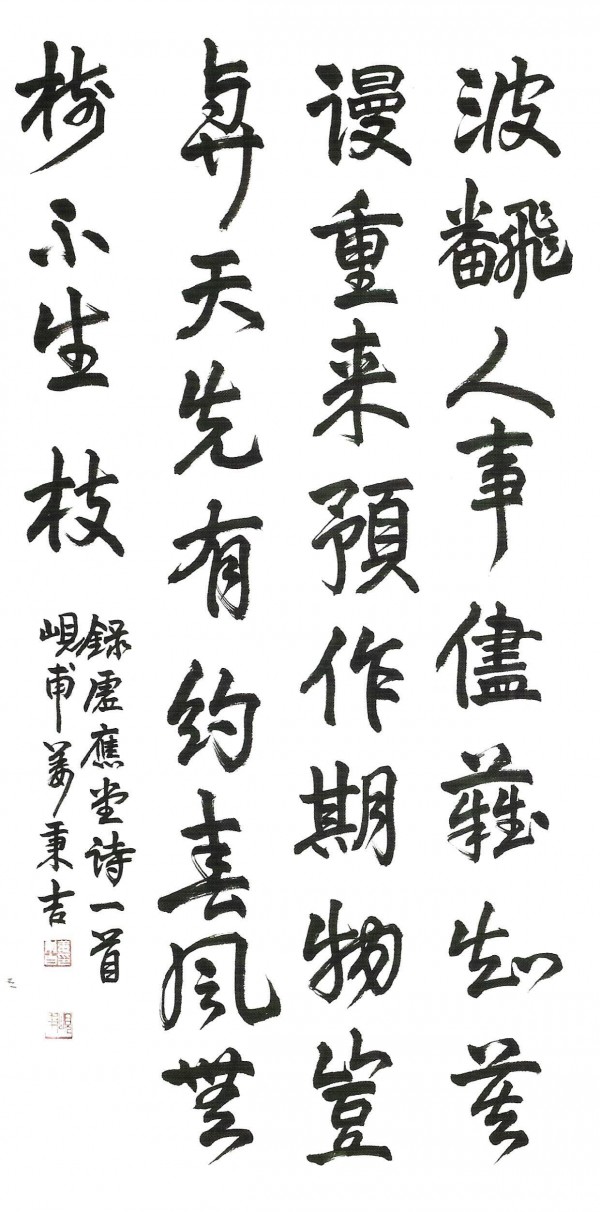 波飜人事儘難知莫
謾重来預作期物豈
與天先有約春風無
樹不生枝
錄虛應堂詩一首
峴甫姜秉吉